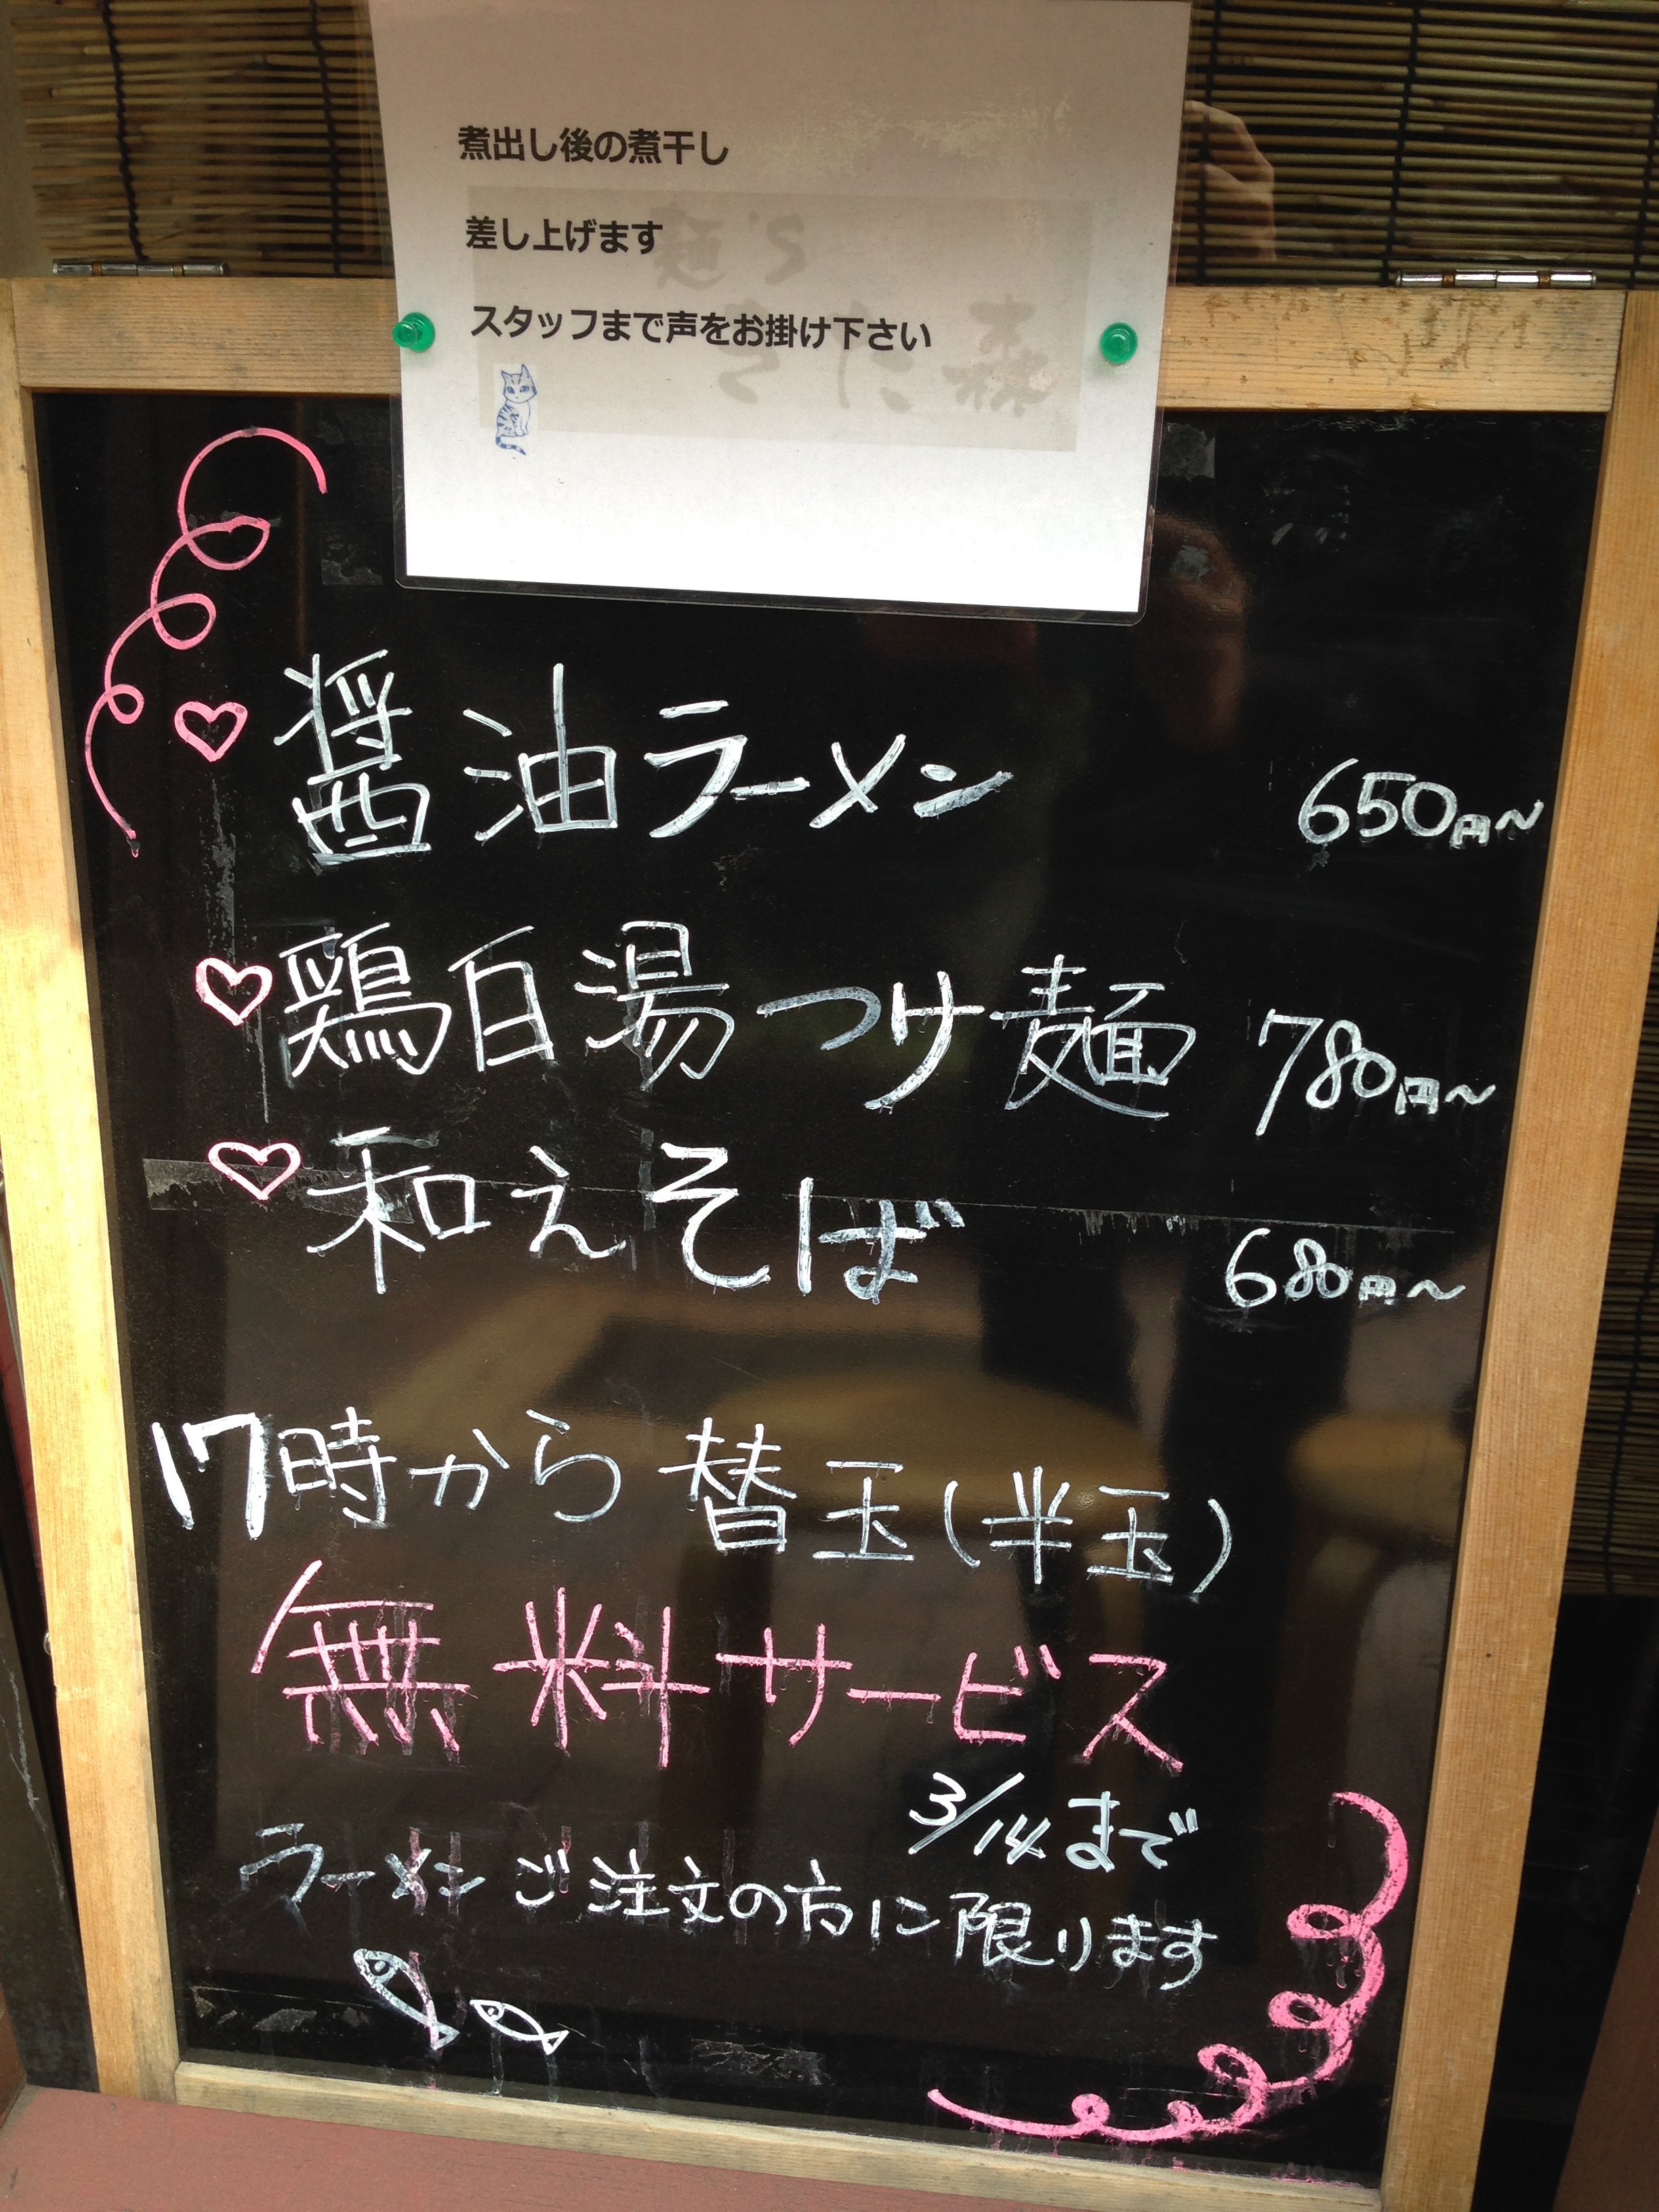 煮出し後の煮干し
差し上げます
スタッフまで声をお掛け下さい
醤油ラーメン 650円〜
鶏白湯つけ麺 780円〜
和えそば 680円〜
17時から替玉(半玉)
無料サービス
3/14まで
ラーメンご注文の方に限ります